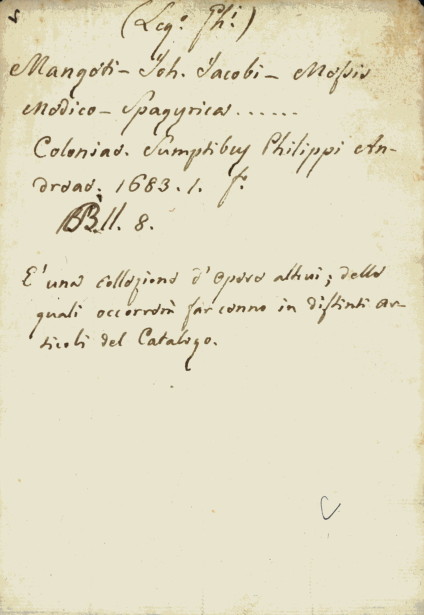 (Leg.º Ghi.)
Mangéti – Joh. Jacobi – Messis
Medico – Spagyrica ......
Coloniae. Sumptibus Philippi An-
dreae. 1683. 1. f.º
BB.II. 8.
E' una collezione d'opere altrui; delle
quali occorrerà far cenno in distinti ar-
ticoli del Catalogo.